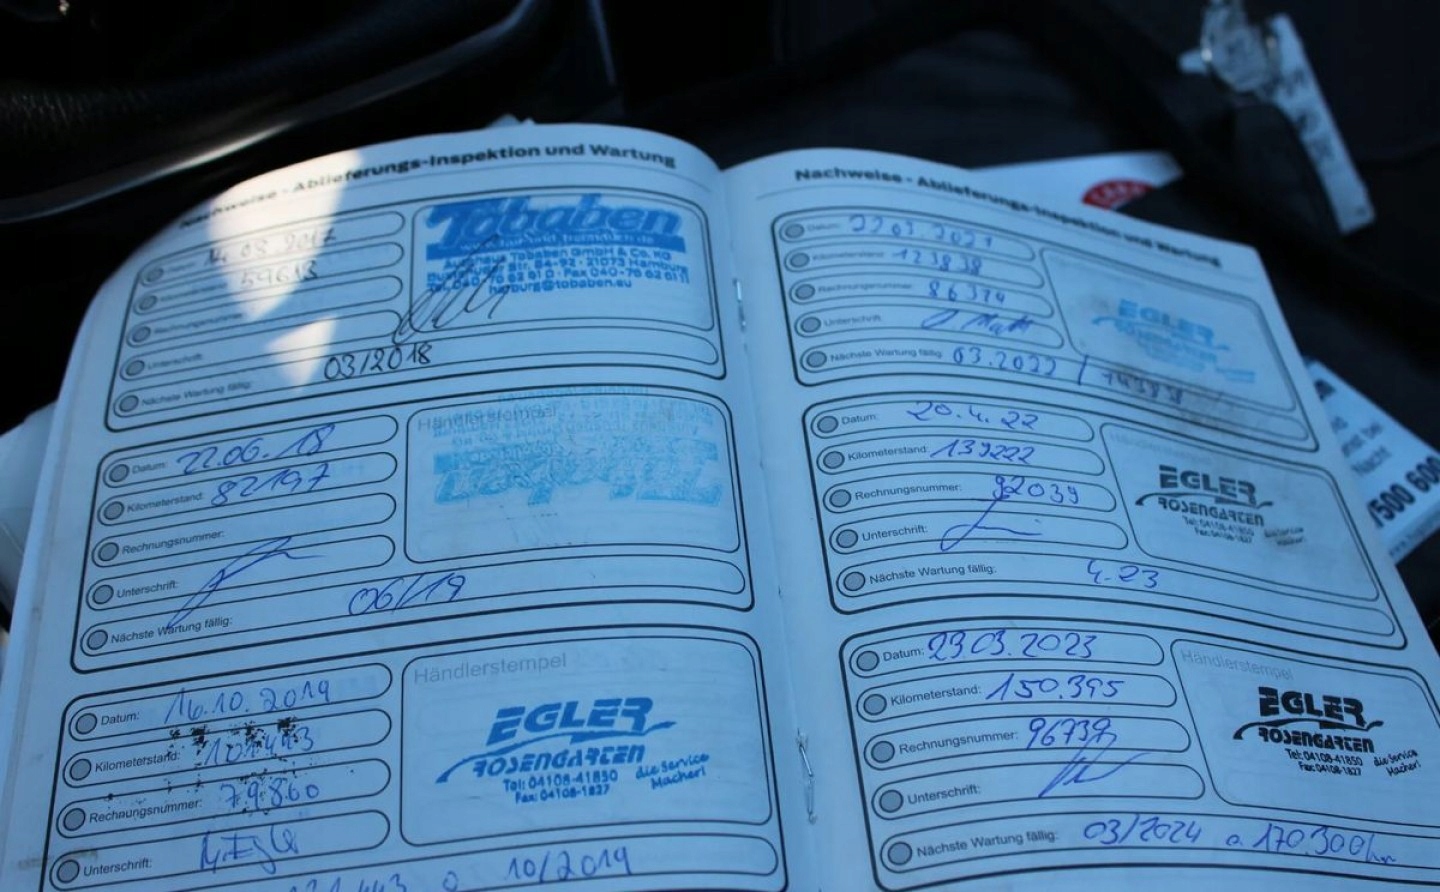 Nachweise - Ablieferungs-Inspektion und Wartung
Datum: 14.03.2017
59613
Rechnungsnummer:
Unterschrift:
Nächste Wartung fällig: 03/2018
Tobaben
Autohaus Tobaben GmbH & Co. KG
Str. 84-92 · 21073 Hamburg
Fax 040-76 62 61 11
harburg@tobaben.eu
Datum: 22.06.18
Kilometerstand: 82197
Rechnungsnummer:
Unterschrift:
Nächste Wartung fällig: 06/19
Händlerstempel
Datum: 16.10.2019
Kilometerstand: 101443
Rechnungsnummer: 79860
Unterschrift: Egler
10/2019
Händlerstempel
EGLER
ROSENGARTEN
Tel: 04108-41850
Fax: 04108-1827
die Service
Macher!
Nachweise - Ablieferungs-Inspektion und Wartung
Datum: 22.03.2021
Kilometerstand: 123838
Rechnungsnummer: 86374
Unterschrift:
Nächste Wartung fällig: 03.2022 /
EGLER
ROSENGARTEN
Datum: 20.4.22
Kilometerstand: 139222
Rechnungsnummer: 92039
Unterschrift:
Nächste Wartung fällig: 4.23
Händlerstempel
EGLER
ROSENGARTEN
Tel: 04108-41850
Fax: 04108-1827
die Service
Macher!
Datum: 29.03.2023
Kilometerstand: 150.395
Rechnungsnummer: 96739
Unterschrift:
Nächste Wartung fällig: 03/2024 o 170.300km
Händlerstempel
EGLER
ROSENGARTEN
Tel: 04108-41850
Fax: 04108-1827
die Service
Macher!
Nacht
7500 600